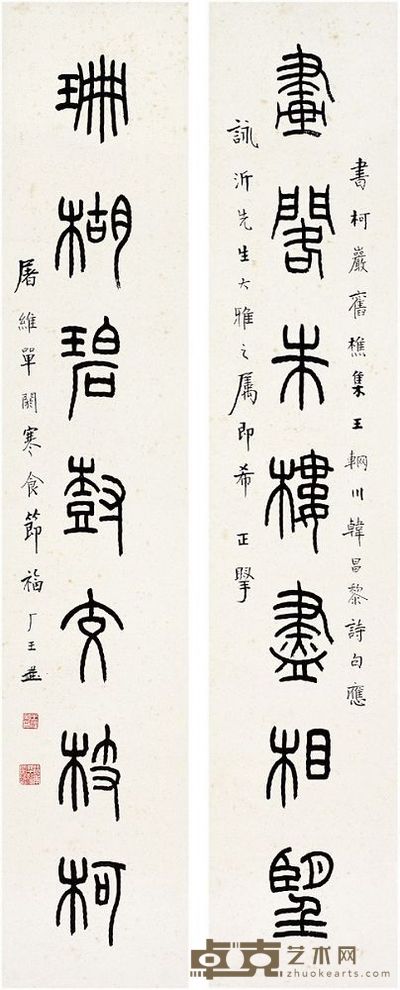 書柯巖舊樵集王輞川韓昌黎詩句應
畫閣朱樓盡相望
詠沂先生大雅之属即希正掔
珊瑚碧樹交枝柯
屠維單閼寒食節福厂王禔
卓克艺术网
zhuokearts.com